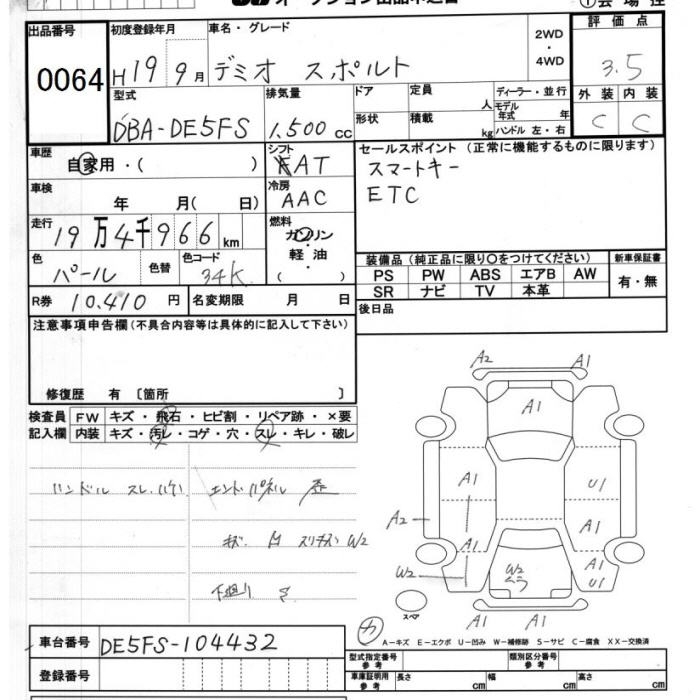 オークション出品申込書
出品番号
0064
初度登録年月
H 19 9月
車名・グレード
デミオ スポルト
2WD
・
4WD
評価点
3.5
型式
DBA-DE5FS
排気量
1.500 cc
ドア
形状
定員
人
積載
kg
ディーラー・並行
モデル年式 年
ハンドル 左・右
外装 内装
C C
車歴
自家用・( )
シフト
FAT
セールスポイント(正常に機能するものに限ります)
スマートキー
ETC
車検
年 月( 日)
冷房
AAC
走行
19万4千966km
燃料
ガソリン
軽油
( )
色
パール
色替
色コード
34K
装備品(純正品に限り〇をつけてください)
新車保証書
PS PW ABS エアB AW
SR ナビ TV 本革
有・無
R券 10.410 円
名変期限 月 日
後日品
注意事項申告欄(不具合内容等は具体的に記入して下さい)
修復歴 有 〔箇所 〕
検査員
記入欄
FW キズ・飛石・ヒビ割・リペア跡・×要
内装 キズ・汚レ・コゲ・穴・スレ・キレ・破レ
ハンドル スレ.ハゲ
エンドパネル 歪
キズ 凹 W2
下廻り サ
A2 A1
A1
A1 U1
A2 A1
A1 A1
W2 W2 ムラ U1
A1 A1
スペア
A－キズ E－エクボ U－凹み W－補修跡 S－サビ C－腐食 XX－交換済
車台番号 DE5FS-104432
登録番号
型式指定番号 参考
類別区分番号 参考
車庫証明用 参考
長さ cm 幅 cm 高さ cm